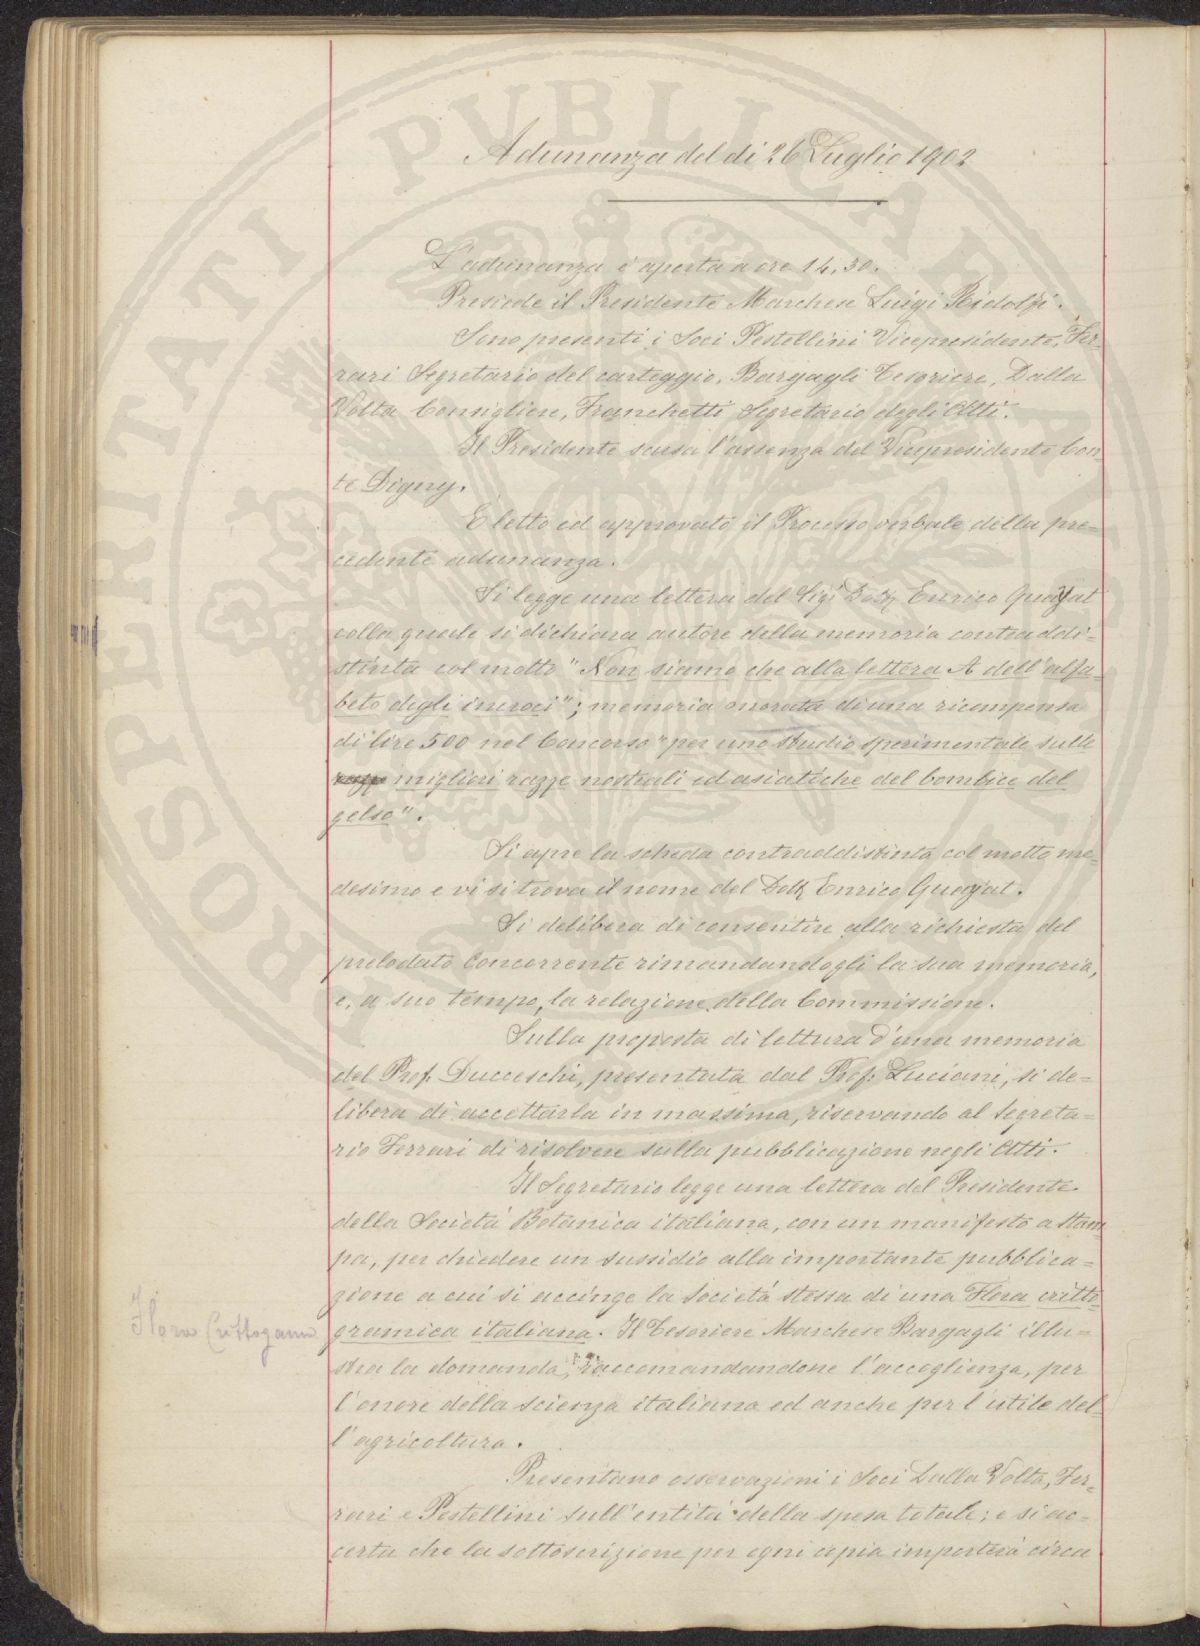 PROSPERITATI PUBLICAE AUGENDAE
Adunanza del dì 26 Luglio 1902
L'adunanza è aperta a ore 14,30.
Presiede il Presidente Marchese Luigi Ridolfi.
Sono presenti i Soci Pestellini Vicepresidente, Fer-
rari Segretario del carteggio, Bargagli Tesoriere, Dalla
Volta Consigliere, Franchetti Segretario degli Atti.
Il Presidente scusa l'assenza del Vicepresidente Con-
te Digny.
È letto ed approvato il Processo verbale della pre=
cedente adunanza.
Si legge una lettera del Sigr Dott. Enrico Quajat
colla quale si dichiara autore della memoria contraddi=
stinta col motto "Non siamo che alla lettera A dell'alfa-
beto degli incroci"; memoria onorata di una ricompensa
di lire 500 nel Concorso "per uno studio sperimentale sulle
migliori razze nostrali ed asiatiche del bombice del
gelso".
Si apre la scheda contraddistinta col motto me-
desimo e vi si trova il nome del Dott. Enrico Quajat.
Si delibera di consentire alla richiesta del
prelodato Concorrente rimandandogli la sua memoria,
e, a suo tempo, la relazione della Commissione.
Sulla proposta di lettura d'una memoria
del Prof. Ducceschi, presentata dal Prof. Luciani, si de=
libera di accettarla in massima, riservando al Segreta=
rio Ferrari di risolvere sulla pubblicazione negli Atti.
Il Segretario legge una lettera del Presidente
della Società Botanica italiana, con un manifesto a stam
pa, per chiedere un sussidio alla importante pubblica=
zione a cui si accinge la Società stessa di una Flora critto-
Flora Crittogam
gramica italiana. Il Tesoriere Marchese Bargagli illu=
stra la domanda, raccomandandone l'accoglienza, per
l'onore della scienza italiana ed anche per l'utile del-
l'agricoltura.
Presentano osservazioni i Soci Dalla Volta, Fer-
rari e Pestellini sull'entità della spesa totale; e si ac=
certa che la sottoscrizione per ogni copia importerà circa